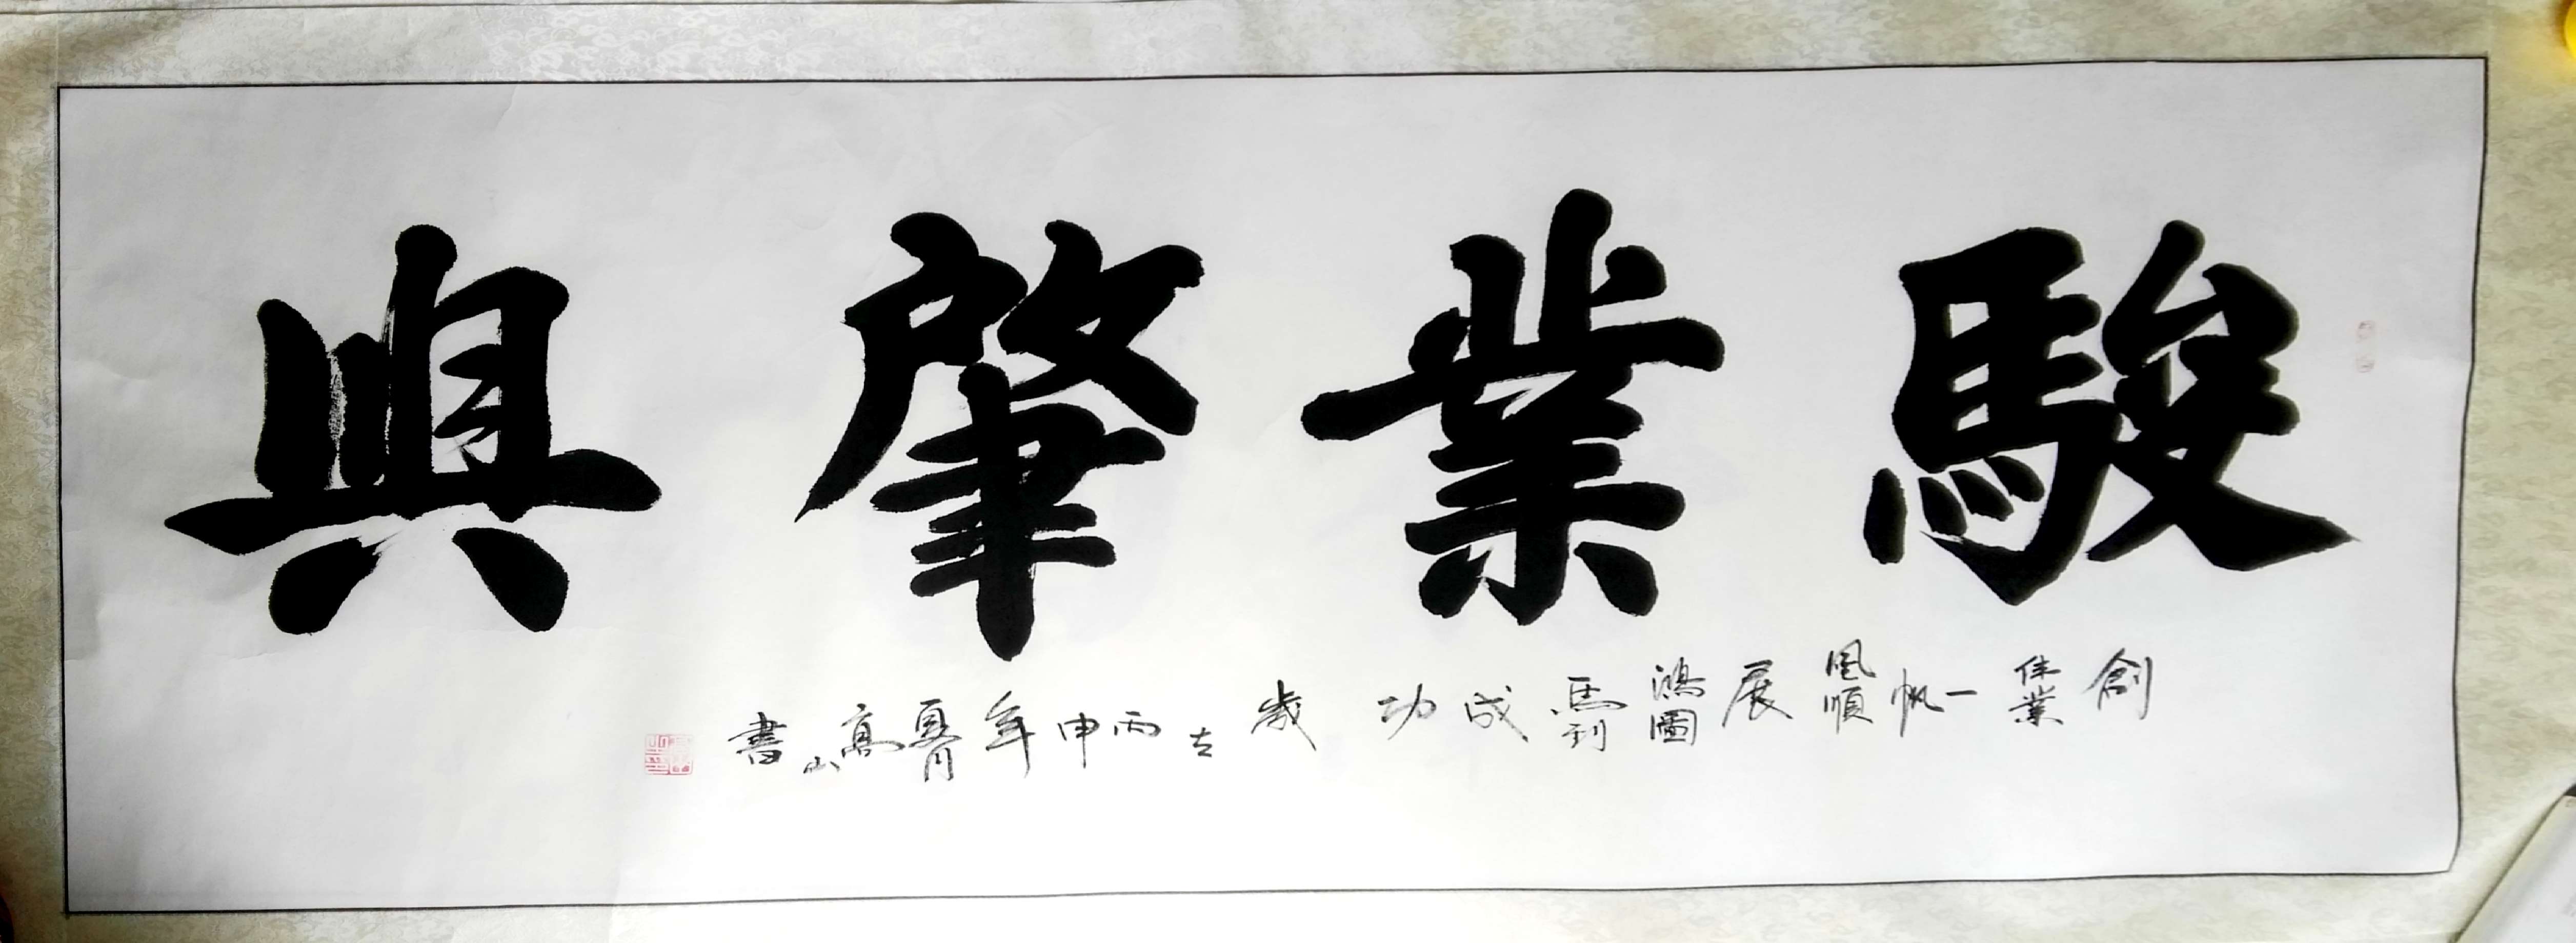 駿業肇興
創佳業一帆風順展鴻圖馬到成功歲在丙申年夏月高山書